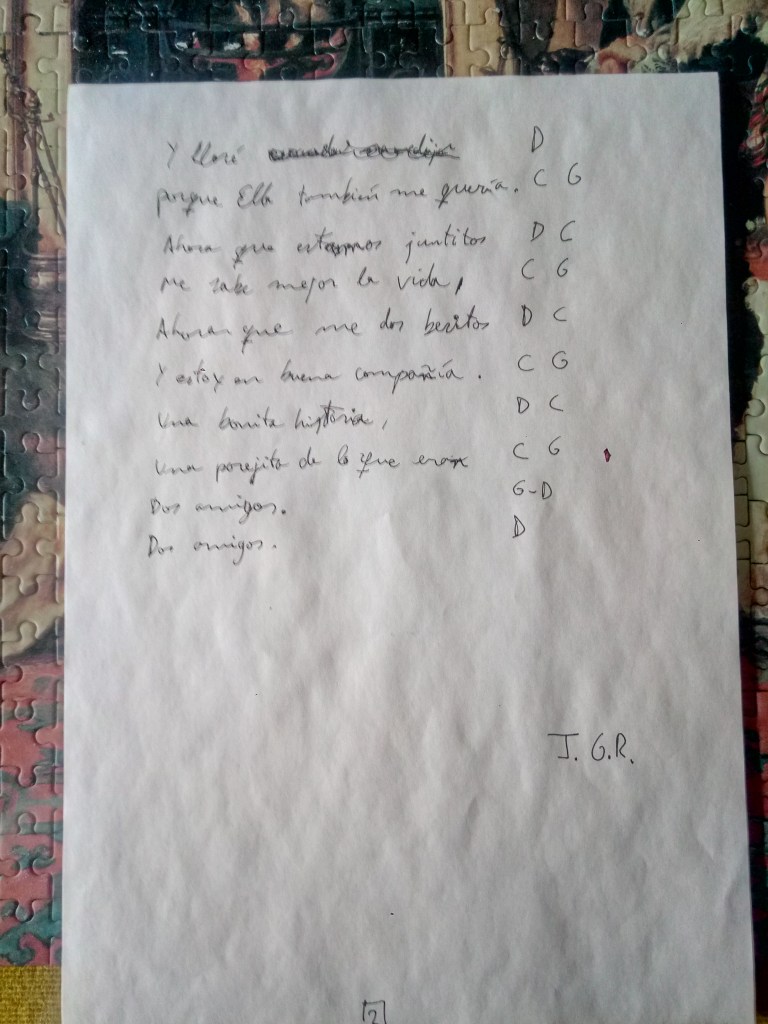 Y lloré D
porque Ella también me quería. C G
Ahora que estamos juntitos D C
Me sabe mejor la vida, C G
Ahora que me dos besitos D C
Y estoy en buena compañía. C G
Una bonita historia, D C
Una parejita de lo que eran C G
Dos amigos. G-D
Dos amigos. D
J. G.R.
2